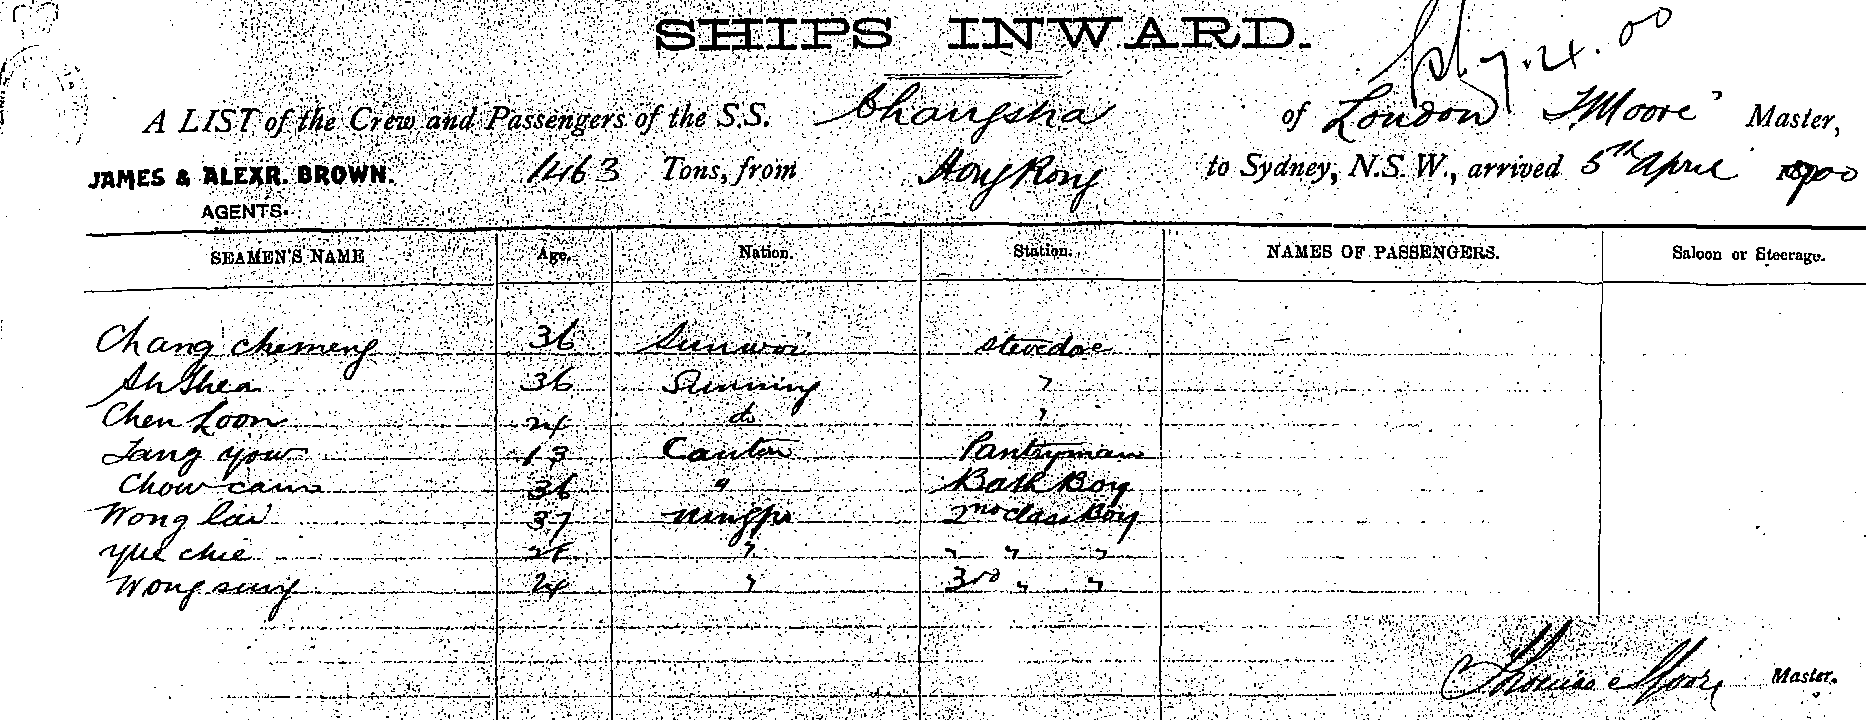 SHIPS INWARD.
A LIST of the Crew and Passengers of the S.S. Changsha of London T Moore Master,
JAMES & ALEXR. BROWN. 1463 Tons, from Hong Kong to Sydney, N.S.W., arrived 5th April 1900
AGENTS.
SEAMEN'S NAME Age. Nation. Station. NAMES OF PASSENGERS. Saloon or Steerage.
Chang chemeng 36 Sunwoi stevedore
Ah Shea 36 Sunning "
Chen Loon 24 do "
Tang yow 13 Canton Pantryman
Chow cam 36 " Bath Boy
Wong lai 37 ningpo 2nd class Boy
yue chie 24 " " " "
Wong sung 24 " 3rd " "
Thomas Moore Master.